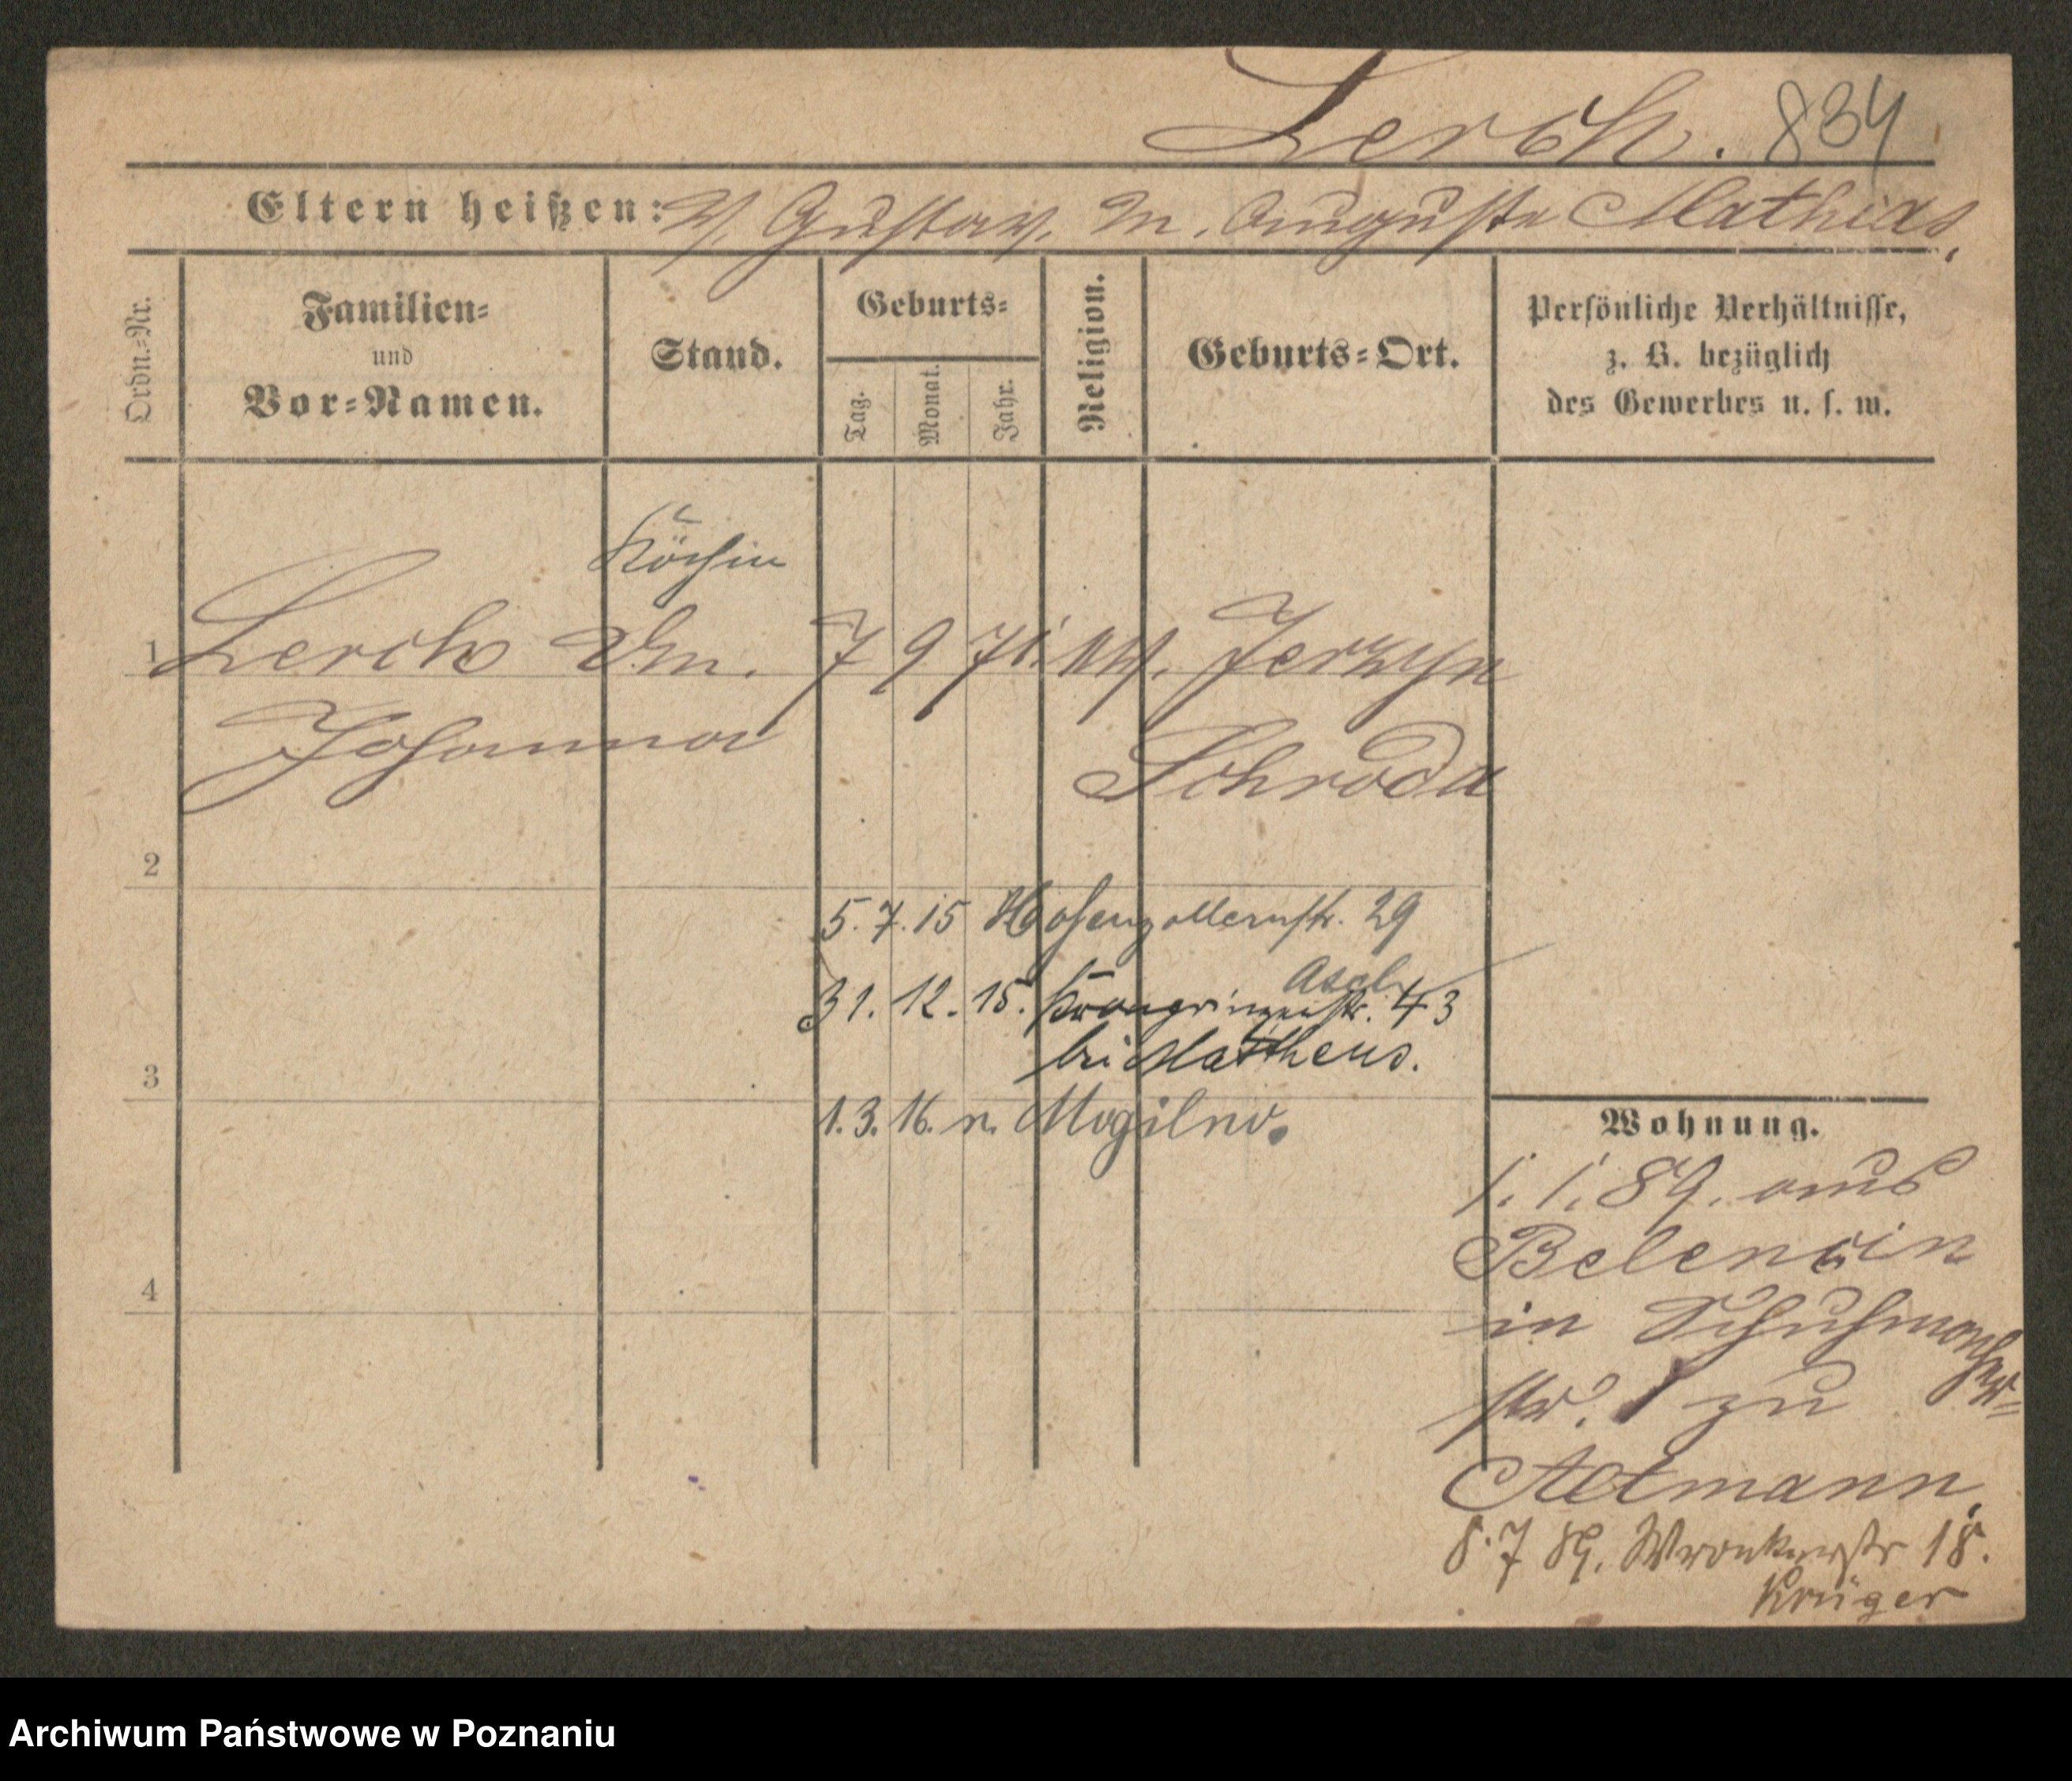 Lerch. 834
Eltern heißen: V. Gustav. M. Auguste Mathias,
Ordn.=Nr.
Familien=
und
Vor=Namen.
Stand.
Geburts=
Tag.
Monat.
Jahr.
Religion.
Geburts=Ort.
Persönliche Verhältnisse,
z. B. bezüglich
des Gewerbes u. s. w.
Köchin
1 Lerch 7 9 71. Jerzyn
Johanna Schroda
2
5. 7. 15 Hohenzollernstr. 29
31. 12. 15. Kronprinzenstr. 43
bei Mattheus.
3
1. 3. 16. n. Mogilno.
4
Wohnung.
1. 1. 89. aus
Belencin
in Schuhmacher=
str. 1 zu
Altmann,
8. 7 89. Wronkerstr 18.
Krüger
Archiwum Państwowe w Poznaniu